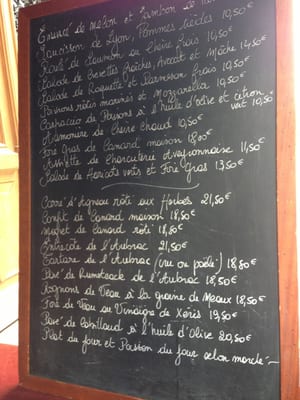 Éventail de Melon et Jambon de
Saucisson de Lyon, Pommes tièdes 10,50€
Roulé de Saumon au chèvre frais 14,50€
Salade de Crevettes fraîches, Avocat et Mâche 14,50€
Salade de Roquette et Parmesan frais 10,50€
Poivrons rôtis marinés et Mozzarella 10,50€
Carpaccio de Poissons à l'huile d'olive et citron
vert 10,50€
de Chèvre chaud 10,50€
Foie Gras de Canard maison 18,00€
Assiette de Charcuterie Aveyronnaise 11,50€
Salade de Haricots verts et Foie Gras 13,50€
Carré d'Agneau rôti aux Herbes 21,50€
Confit de Canard maison 18,50€
Magret de Canard rôti 18,80€
Entrecôte de l'Aubrac 21,50€
Tartare de l'Aubrac (cru ou poêlé) 18,80€
Pavé de Rumsteack de l'Aubrac 18,50€
Rognons de Veau à la graine de Meaux 18,50€
Foie de Veau au Vinaigre de Xérès 19,50€
Pavé de Cabillaud à l'huile d'Olive 20,50€
Plat du jour et Poisson du jour selon marché